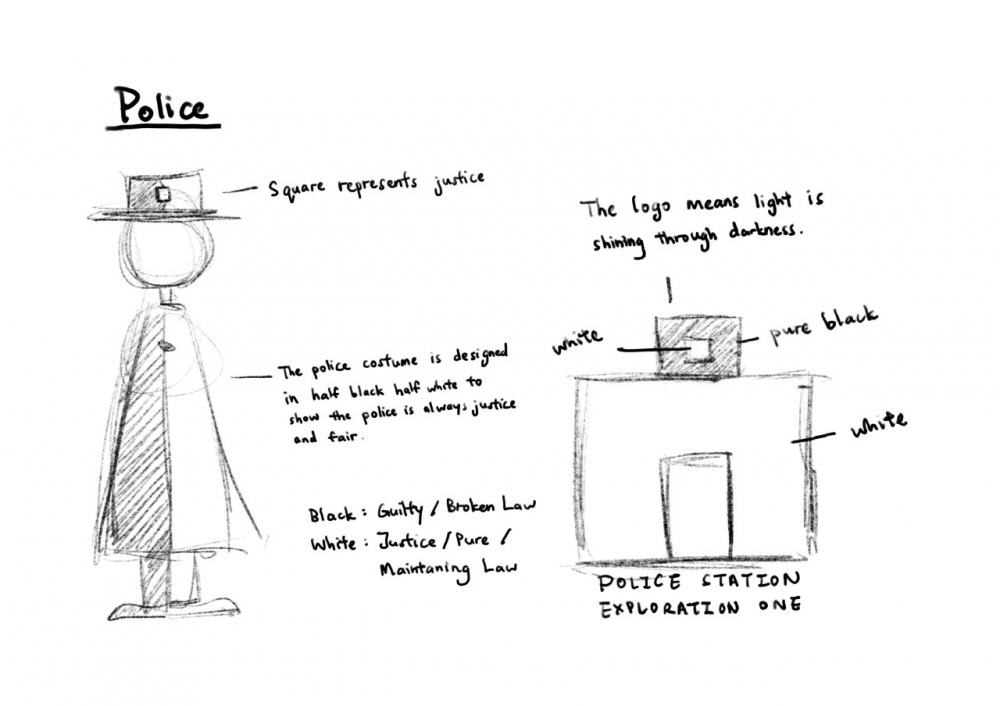 Police
Square represents justice
The police costume is designed
in half black half white to
show the police is always justice
and fair.
Black: Guilty / Broken Law
White: Justice / Pure /
Maintaning Law
The logo means light is
shining through darkness.
white
pure black
white
POLICE STATION
EXPLORATION ONE